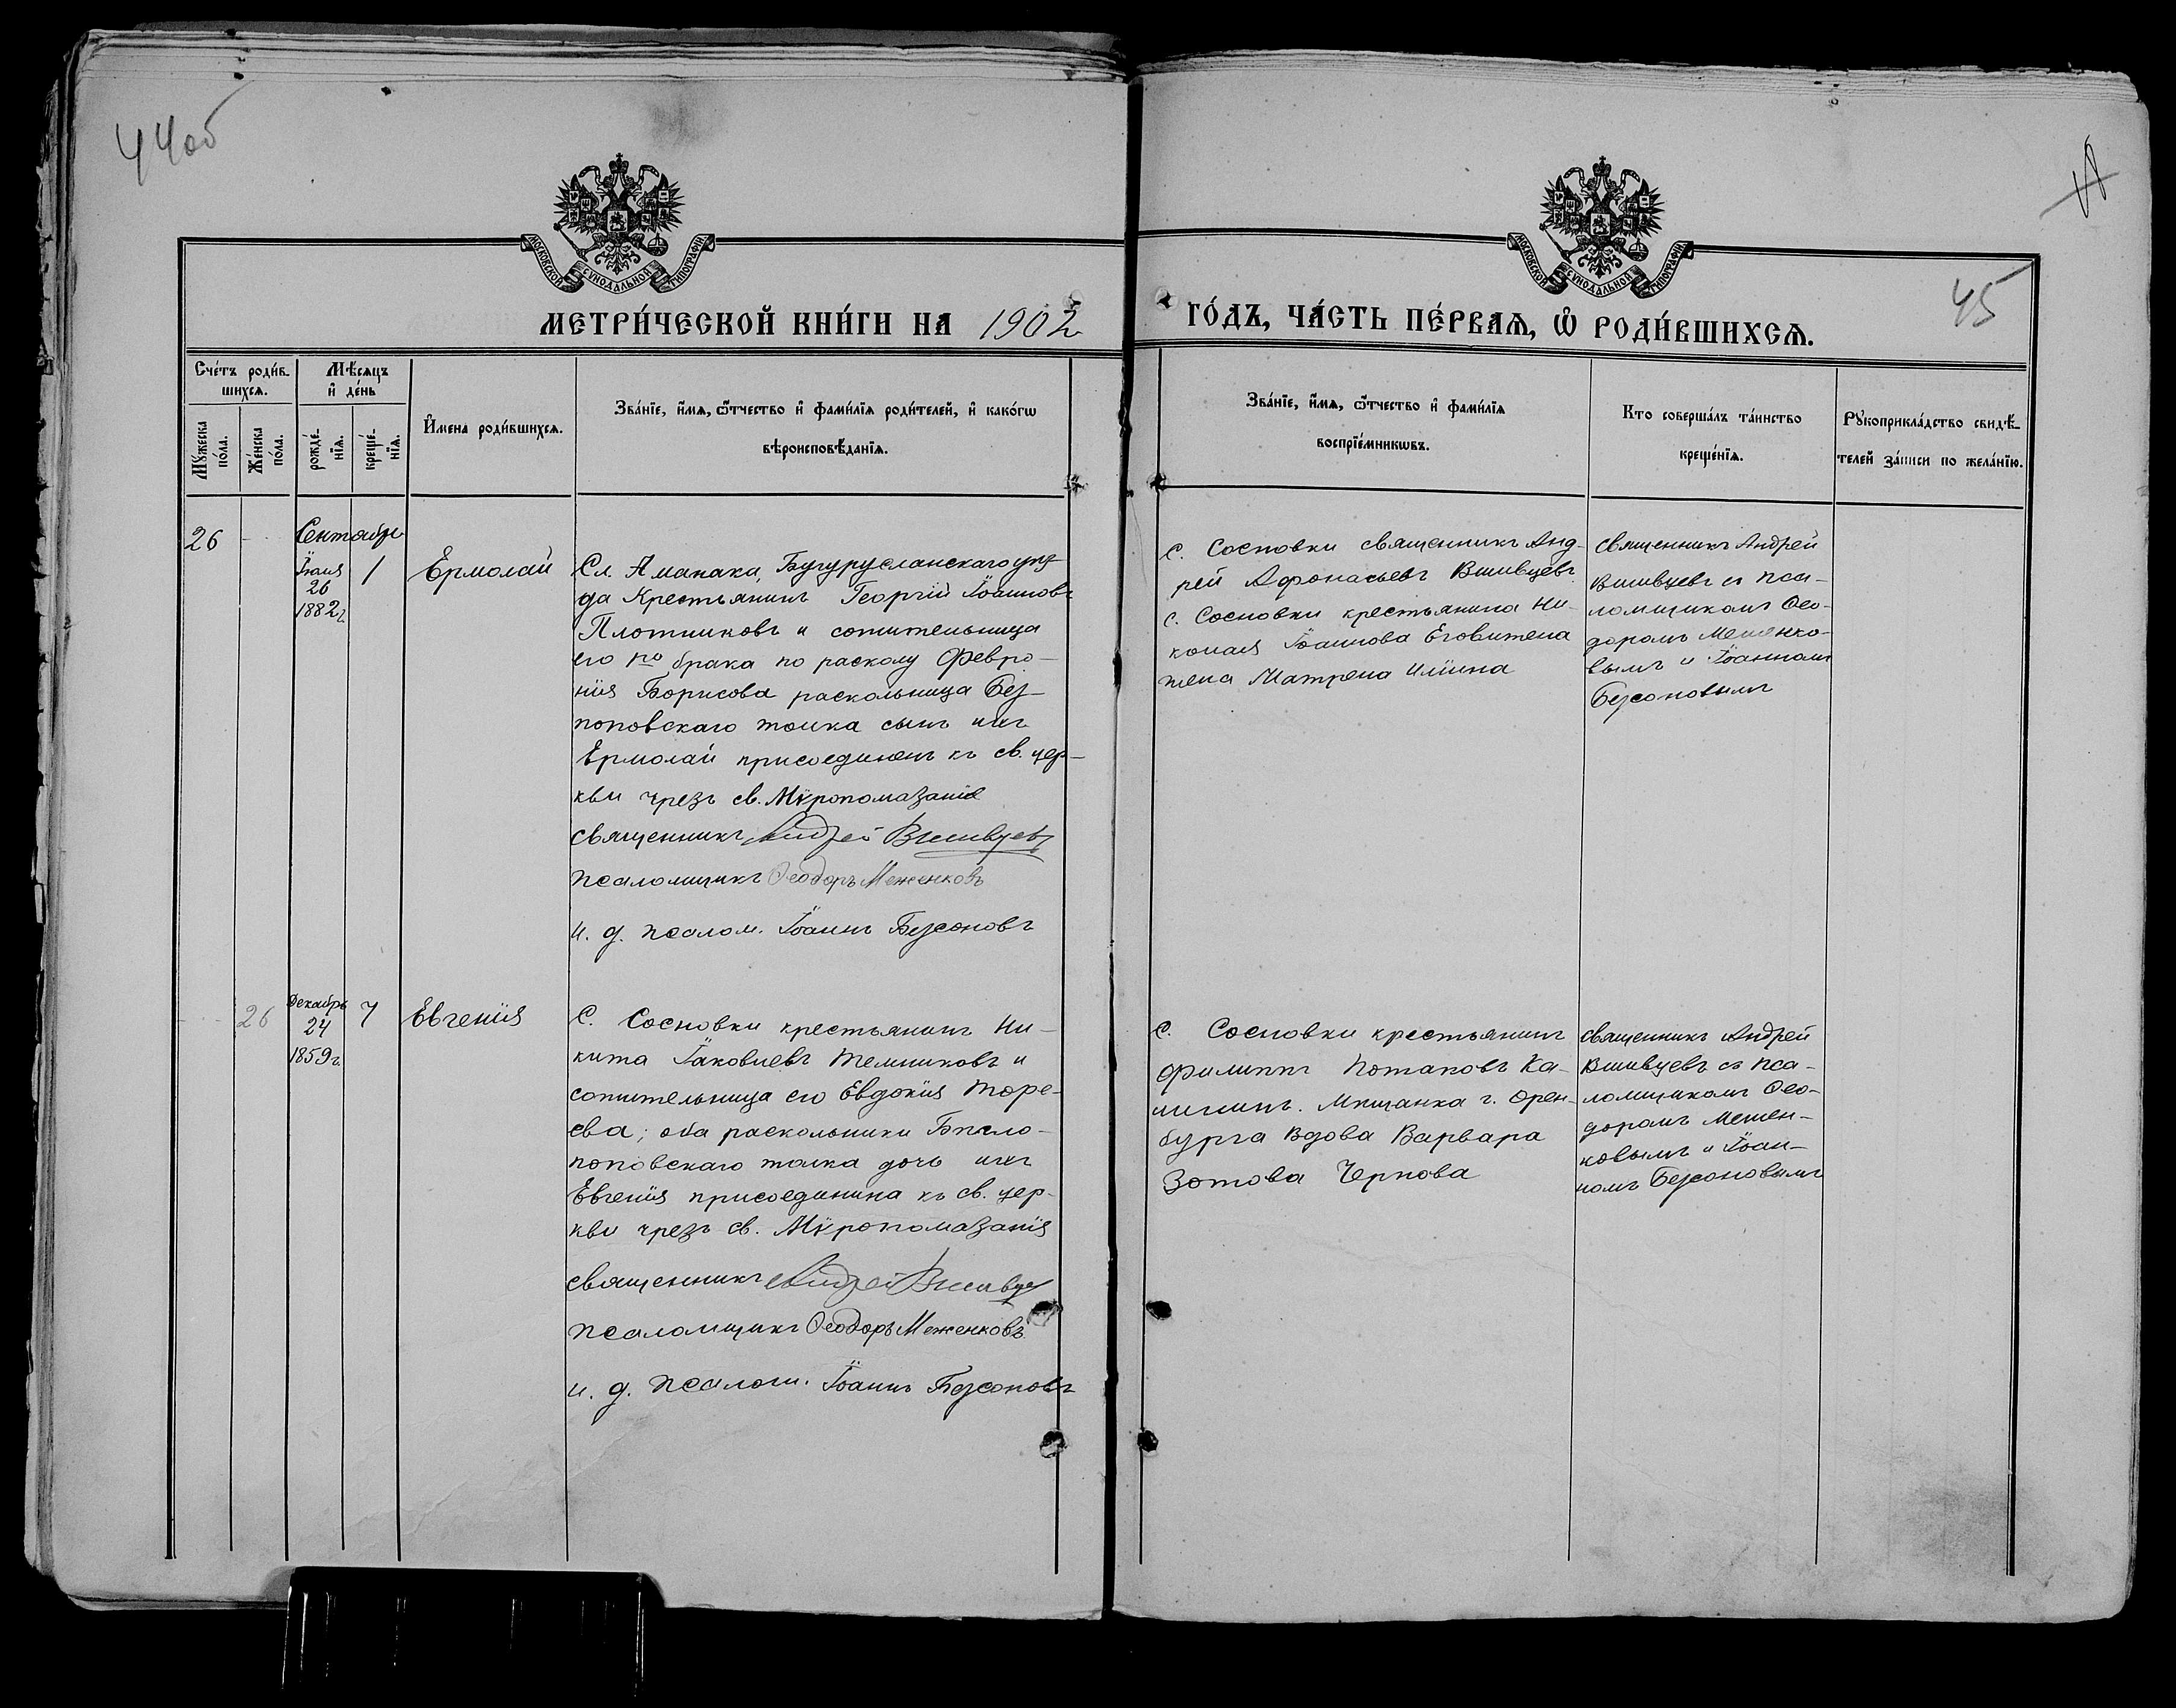 44об
45
МОСКОВСКОЙ СѴНОДАЛЬНОЙ ТИПОГРАФІИ
МОСКОВСКОЙ СѴНОДАЛЬНОЙ ТИПОГРАФІИ
МЕТРИ́ЧЕСКОЙ КНИ́ГИ НА 1902
ГО́ДЪ, ЧА́СТЬ ПЕ́РВАѦ, Ѡ҆ РОДИ́ВШИХСѦ.
Сче́тъ роди́в-
шихсѧ.
Мꙋ́жеска по́ла.
Же́нска по́ла.
Мѣ́сѧцъ
и҆ де́нь
рожде́-нїѧ.
креще́-нїѧ.
И҆мена роди́вшихсѧ.
Зва́нїе, и҆́мѧ, ѻ҆́тчество и҆ фами́лїѧ роди́телей, и҆ како́гѡ
вѣроисповѣ́данїѧ.
Зва́нїе, и҆́мѧ, ѻ҆́тчество и҆ фами́лїѧ
воспрїе́мникѡвъ.
Кто соверша́лъ та́инство
креще́нїѧ.
Рꙋкоприкла́дство свидѣ́-
телей за́писи по жела́нїю.
26
Сентябрь
Іюля
26
1882 г.
1
Ермолай
Сл. Аманака, Бугурусланскаго уѣз
да Крестьянинъ Георгій Іоанновъ
Плотниковъ и сожительница
его по брака по расколу Февро-
нія Борисова раскольница Без-
поповскаго толка сынъ ихъ
Ермолай присоединенъ къ св. цер-
кви чрезъ св. Мѵропомазаніе
священникъ Андрей Вшивцевъ
псаломщикъ Ѳеодоръ Меженковъ
и. д. псалом. Іоаннъ Безсоновъ
с. Сосновки священникъ Анд-
рей Афонасьевъ Вшивцевъ
с. Сосновки крестьянина Ни-
колая Іоаннова Еговитена
жена Матрена Иліина
священникъ Андрей
Вшивцевъ съ пса-
ломщикомъ Ѳео-
доромъ Меженко-
вымъ и Іоанномъ
Безсоновымъ
26
Декабрь
24
1859 г.
7
Евгенія
С. Сосновки крестьянинъ Ни-
кита Іаковлевъ Темниковъ и
сожительница его Евдокія Торе-
ева; оба раскольники Бѣгло-
поповскаго толка дочь ихъ
Евгенія присоединина къ св. цер-
кви чрезъ св. Мѵропомазанія
священникъ Андрей Вшивце
псаломщикъ Ѳеодоръ Меженковъ
и. д. псалом. Іоаннъ Безсоновъ
с. Сосновки крестьянинъ
Филиппъ Потаповъ Ка-
лигинъ. Мѣщанка г. Орен-
бурга вдова Варвара
Зотова Чернова
священникъ Андрей
Вшивцевъ съ пса-
ломщикомъ Ѳео-
доромъ Межен-
ковымъ и Іоан-
номъ Безсоновымъ